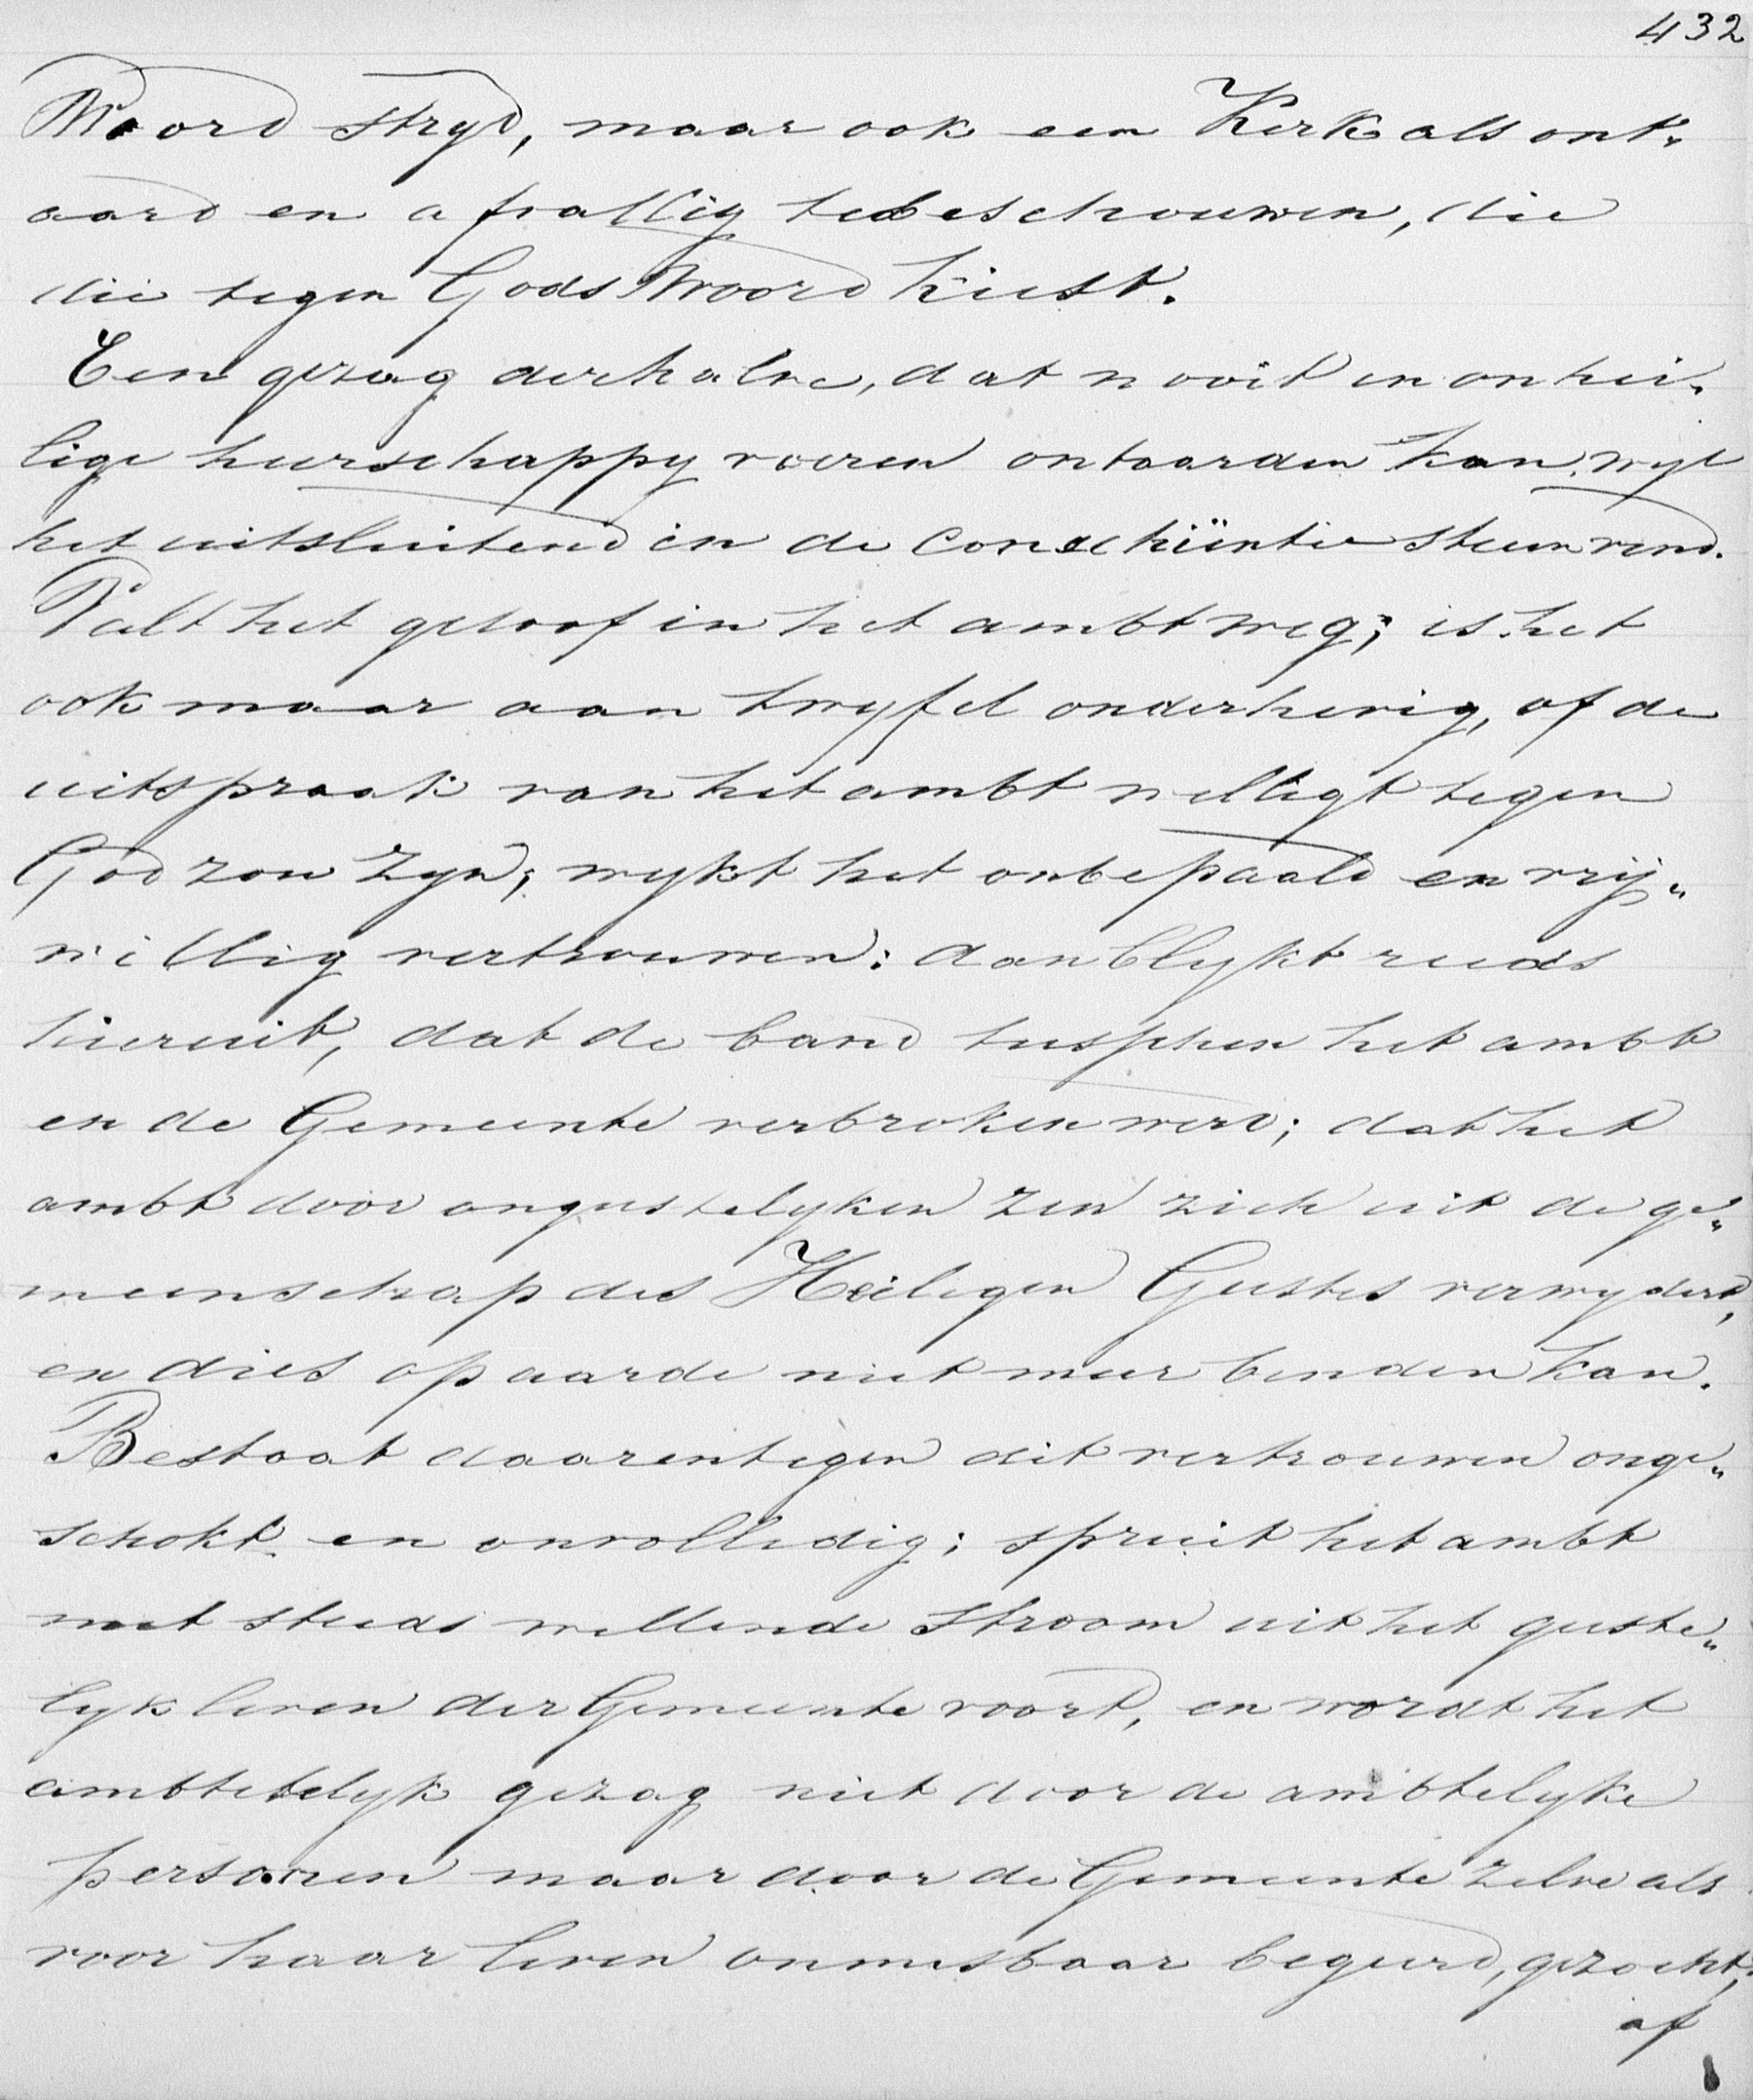 432
Woord strijd, maar ook een Kerk als ont„
aard en afvallig te beschouwen, die
die tegen Gods Woord kiest.
Een gezag derhalve, dat nooit in onhei„
lige heerschappy voeren ontaarden kan, wijl
het uitsluitend in de conschiëntie steun vind.
Valt het geloof in het ambt weg; is het
ook maar aan twyfel onderhevig, of de
uitspraak van het ambt wellegt tegen
God zou zyn; wykt het onbepaald en vrij„
willig vertrouwen: dan blykt reeds
hieruit, dat de band tusschen het ambt
en de Gemeente verbroken werd; dat het
ambt door ongeestelyken zin zich uit de ge„
meenschap des Heiligen Geestes verwyderd,
en dies op aarde niet meer binden kan.
Bestaat daarentegen dit vertrouwen onge„
schokt en onvolledig; spruit het ambt
met steeds wellende stroom uit het geeste„
lyk leven der Gemeente voort, en wordt het
ambtetelyk gezag niet door de ambtelyke
personen maar door de Gemeente zelve als
voor haar leven onmisbaar begeerd, gezocht,
af